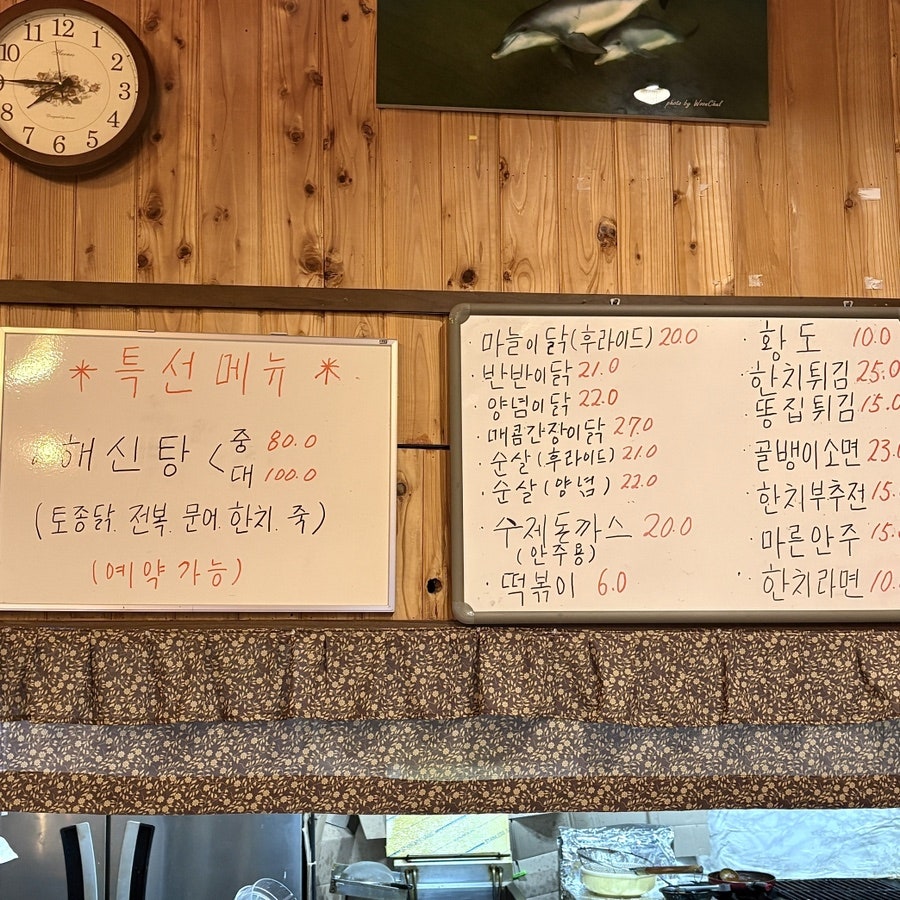 12
1
2
3
4
5
6
7
8
10
11
photo by WooaChul
* 특선메뉴 *
해신탕 < 중 80.0
대 100.0
(토종닭. 전복. 문어. 한치. 죽)
(예약가능)
마늘이닭(후라이드) 20.0
반반이닭 21.0
양념이닭 22.0
매콤간장이닭 27.0
순살(후라이드) 21.0
순살(양념) 22.0
수제돈까스 20.0
(안주용)
떡볶이 6.0
황도 10.0
한치튀김 25.0
똥집튀김 15.0
골뱅이소면 23.
한치부추전 15.
마른안주 15.
한치라면 10.